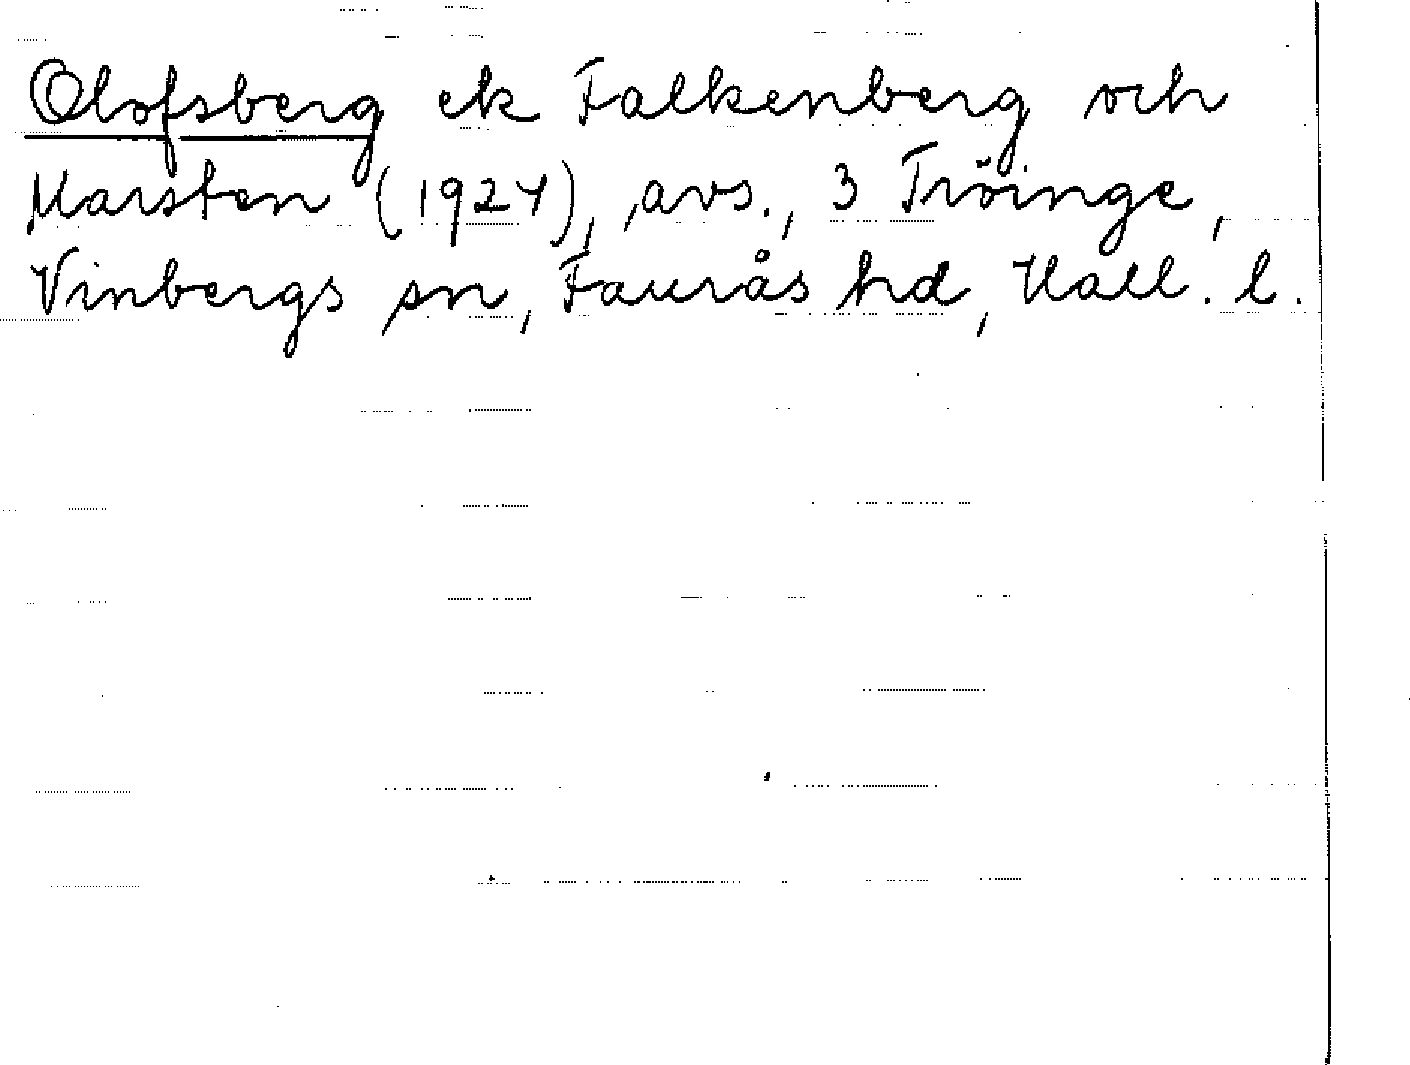 Olofsberg ek Falkenberg och
Marsten (1924), avs., 3 Tröinge,
Vinbergs sn, Faurås hd, Hall. l.